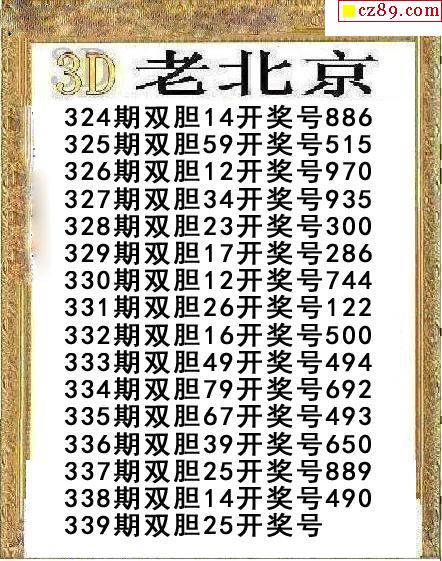 cz89.com
3D老北京
324期双胆14开奖号886
325期双胆59开奖号515
326期双胆12开奖号970
327期双胆34开奖号935
328期双胆23开奖号300
329期双胆17开奖号286
330期双胆12开奖号744
331期双胆26开奖号122
332期双胆16开奖号500
333期双胆49开奖号494
334期双胆79开奖号692
335期双胆67开奖号493
336期双胆39开奖号650
337期双胆25开奖号889
338期双胆14开奖号490
339期双胆25开奖号